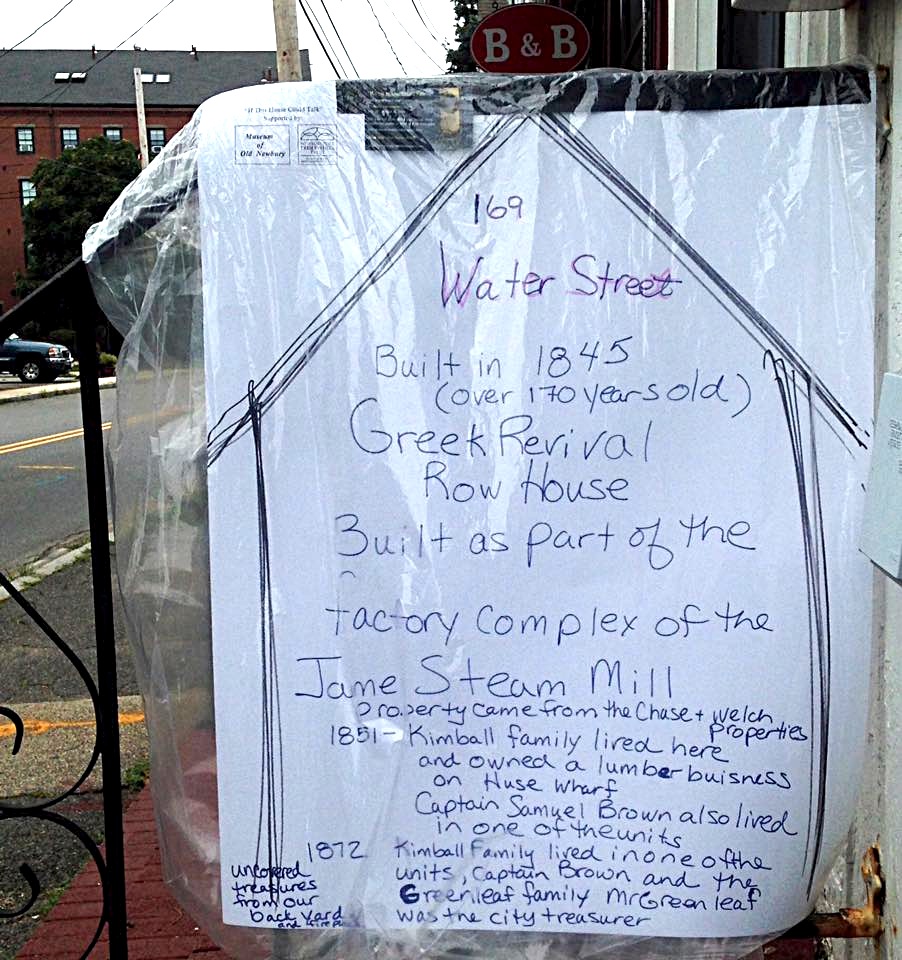 B & B
"If This House Could Talk"
Supported by:
Museum
of
Old Newbury
169
Water Street
Built in 1845
(over 170 years old)
Greek Revival
Row House
Built as part of the
factory complex of the
Jame Steam Mill
Property came from the Chase + Welch
properties
1851- Kimball family lived here
and owned a lumber buisness
on Huse Wharf
Captain Samuel Brown also lived
in one of the units
1872 Kimball Family lived in one of the
units, Captain Brown and the
Greenleaf family Mr Greenleaf
was the city treasurer
uncovered
treasures
from our
back yard
and